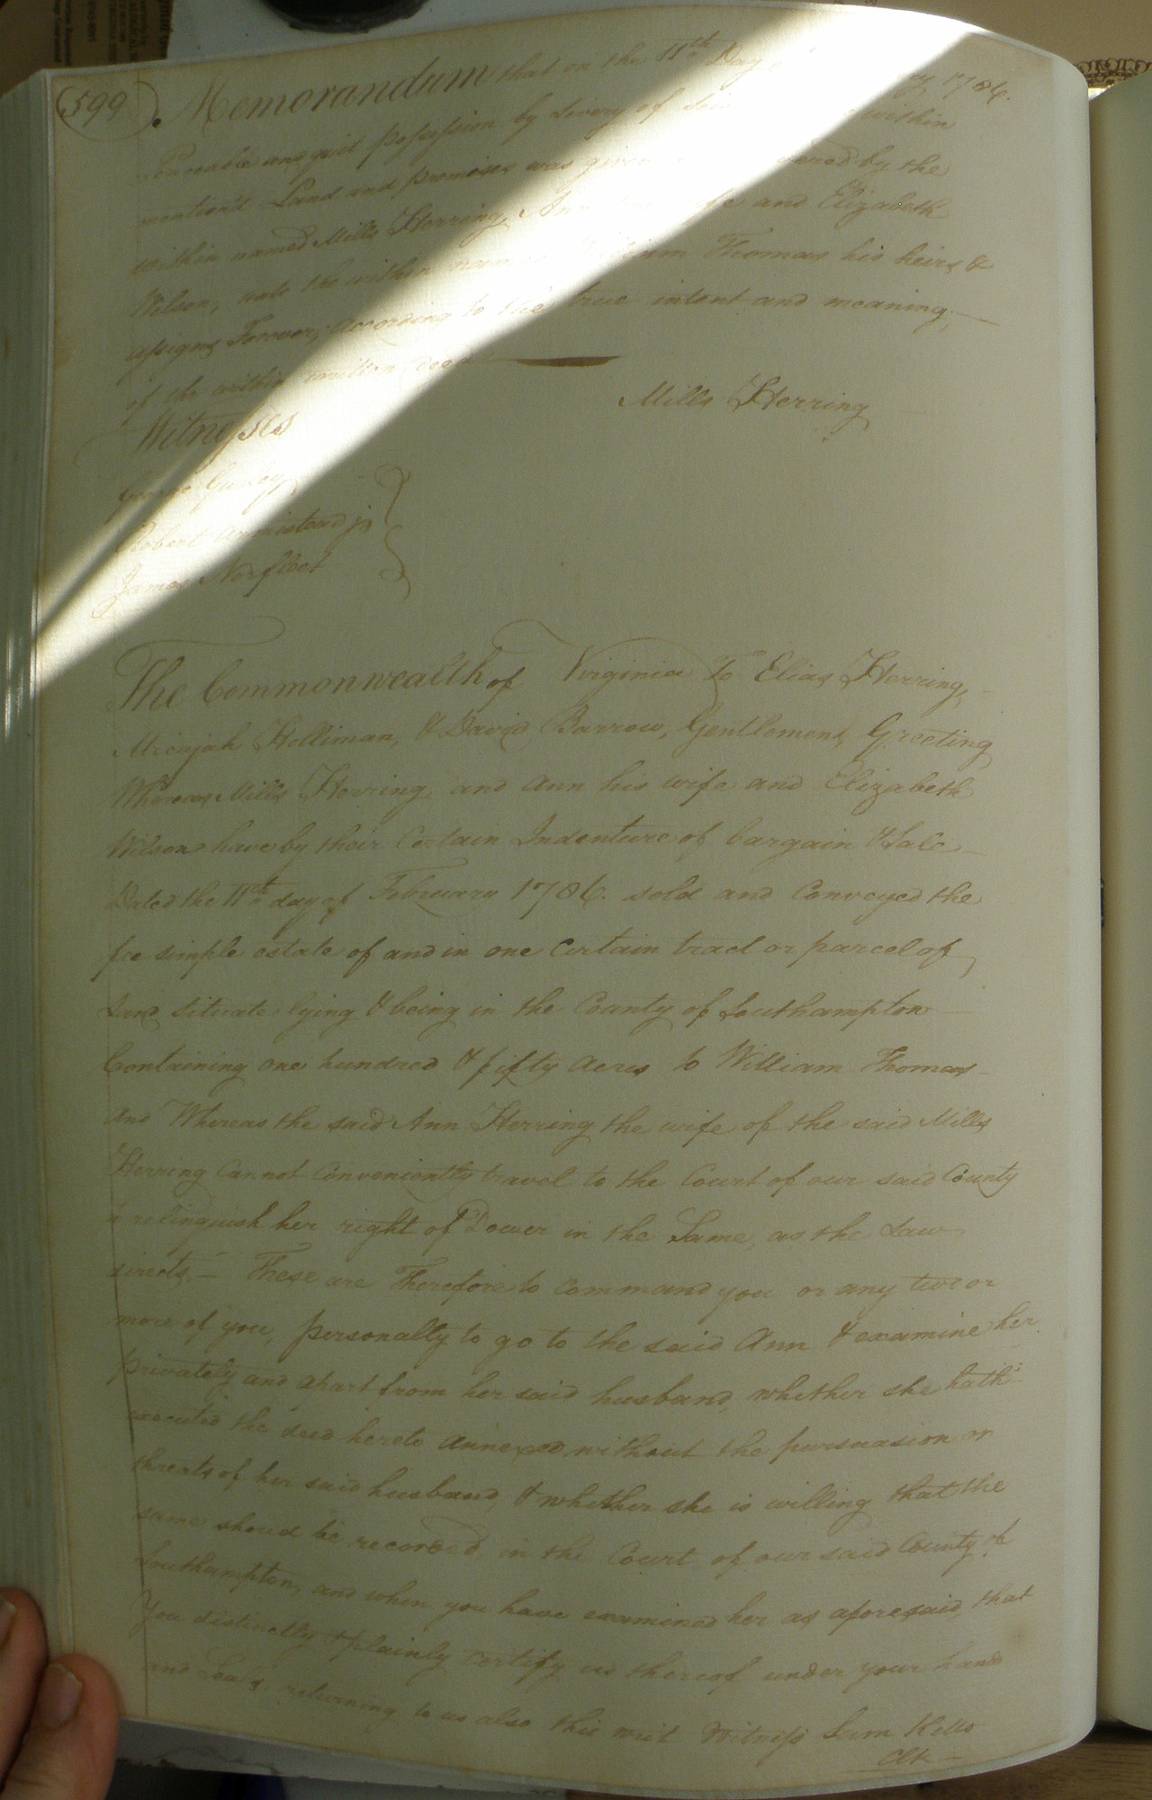 599
Memorandum that on the 11th Day 1786.
Peaceable and quiet possession by livery of within
mention'd Land and premises was given by the
within named Mills Herring, Ann wife and Elizabeth
Wilson, unto the within William Thomas his heirs &
assigns Forever, according to the true intent and meaning
of the within written deed
Mills Herring
Witness
George Gurley
Robert Armistead jr
James Norfleet
The Commonwealth of Virginia To Elias Herring,
Micajah Holliman, & David Barrow, Gentlemen, Greeting
Whereas Mills Herring and Ann his wife and Elizabeth
Wilson have by their Certain Indenture of bargain & Sale
Dated the 11th day of February 1786. sold and Conveyed the
fee simple estate of and in one Certain tract or parcel of
Land situate lying & being in the County of Southampton
Containing one hundred & fifty Acres to William Thomas
And Whereas the said Ann Herring the wife of the said Mills
Herring Cannot Conveniently travel to the Court of our said County
relinquish her right of Dower in the Same, as the Law
directs,— These are Therefore to command you or any two or
more of you, personally to go to the said Ann & examine her
privately and apart from her said husband, whether she hath
executed the deed hereto Annexed without the pursuasion or
threats of her said husband, & whether she is willing that the
same should be recorded in the Court of our said County of
Southampton, and when you have examined her as aforesaid, that
You distinctly & plainly certify us thereof under your hand
and Seals returning to us also this writ Witness Sam Kello
Clk